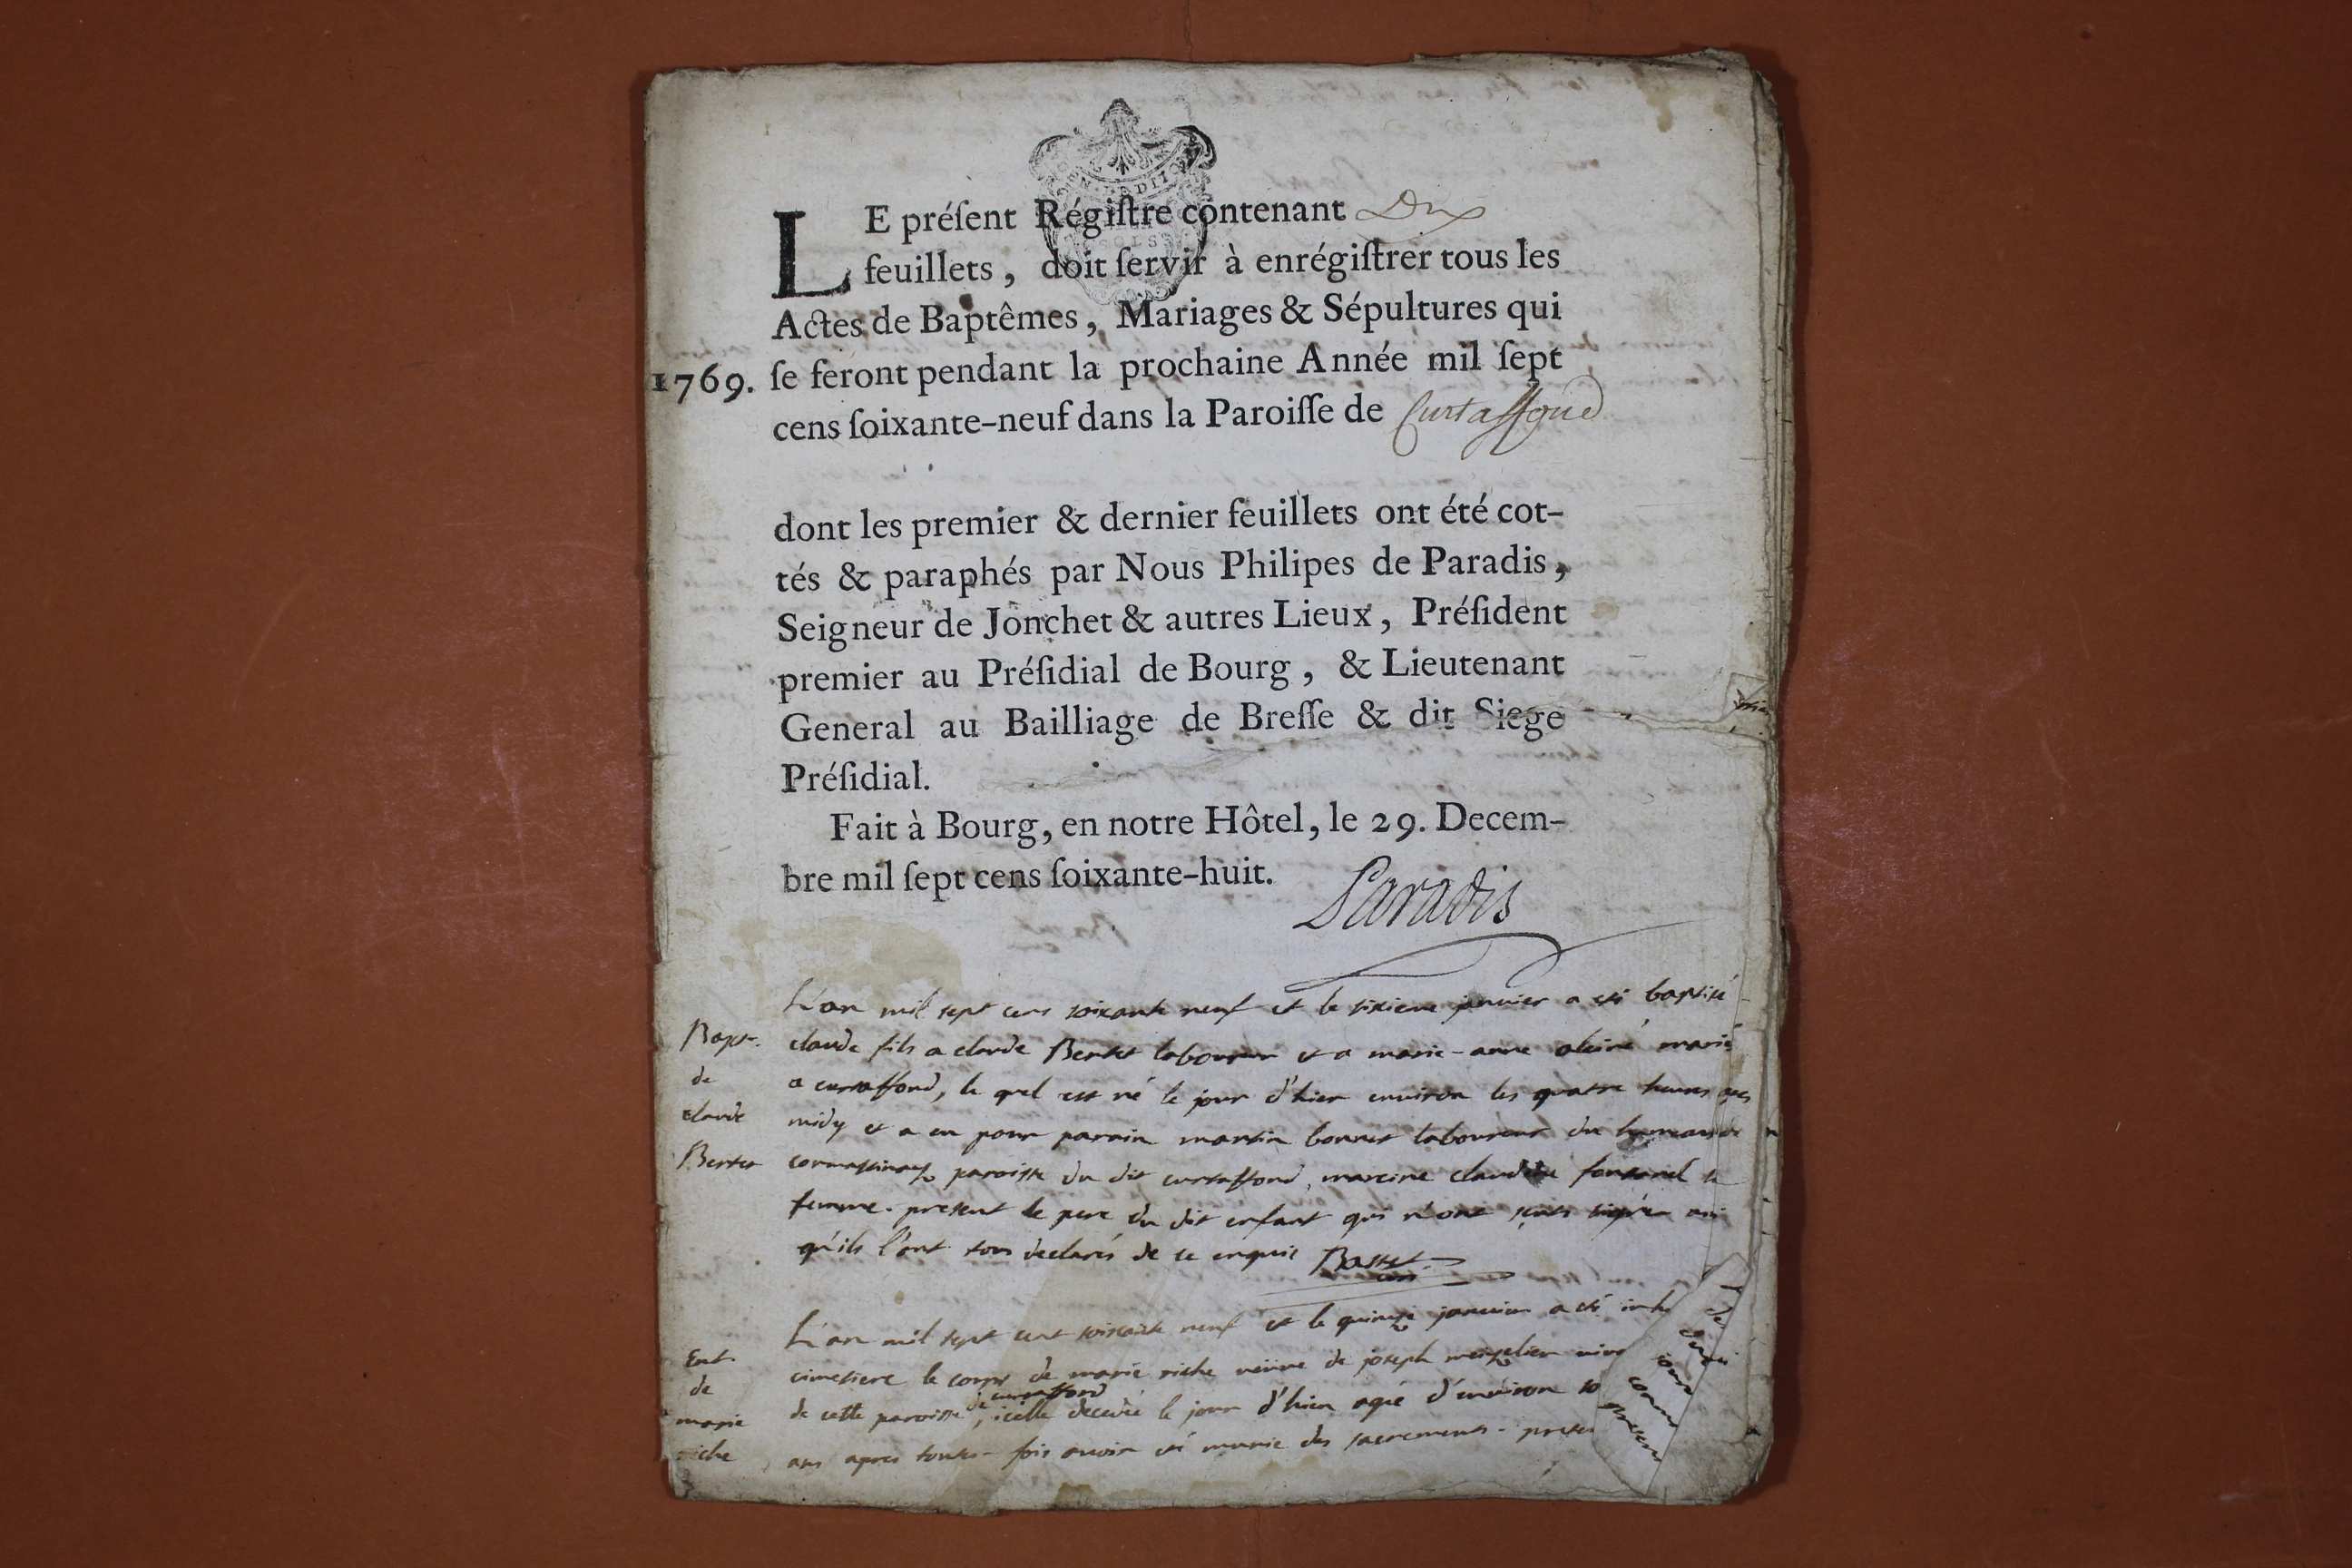 LE préſent Régiſtre contenant Dix
feuillets, doit ſervir à enrégiſtrer tous les
Actes de Baptêmes, Mariages & Sépultures qui
1769. ſe feront pendant la prochaine Année mil ſept
cens ſoixante-neuf dans la Paroiſſe de Curtaffond
dont les premier & dernier feuillets ont été cot-
tés & paraphés par Nous Philipes de Paradis,
Seigneur de Jonchet & autres Lieux, Préſident
premier au Préſidial de Bourg, & Lieutenant
General au Bailliage de Breſſe & dit Siege
Préſidial.
Fait à Bourg, en notre Hôtel, le 29. Decem-
bre mil ſept cens ſoixante-huit.
Paradis
Bapt.
de
claude
L'an mil sept cens soixante neuf et le sixieme janvier a été baptisé
claude fils a claude laboureur et a marie-anne marié
a curtaffond, le quel est né le jour d'hier environ les quatre heures
midy et a eu pour parain martin bonnet laboureur du
paroisse du dit curtaffond, mareine
femme. present le pere du dit enfant qui n'ont
qu'ils l'ont tous declarés de ce enquis Basset
Ent.
de
marie
riche
L'an mil sept cent soixante neuf et le quinze janvier a été
cimetiere le corps de marie riche veuve de joseph
de cette paroisse de curtaffond, icelle decedée le jour d'hier agée d'environ
ans apres toutes-fois avoir été munie des sacrements.